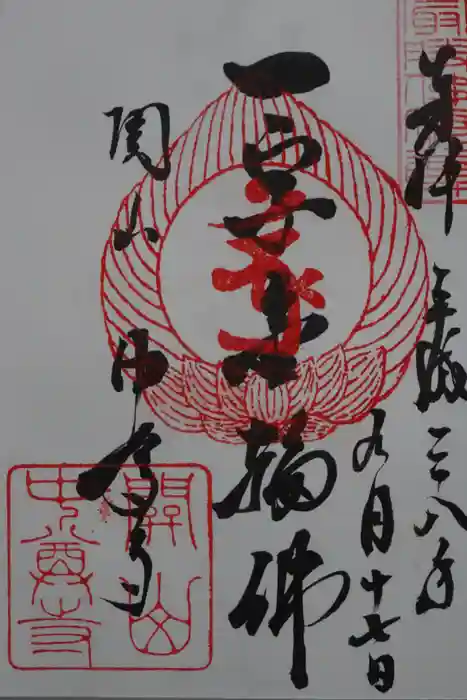 奉拝
平成二八年
九月十七日
一字金輪佛
関山 中尊寺
関山
中尊寺